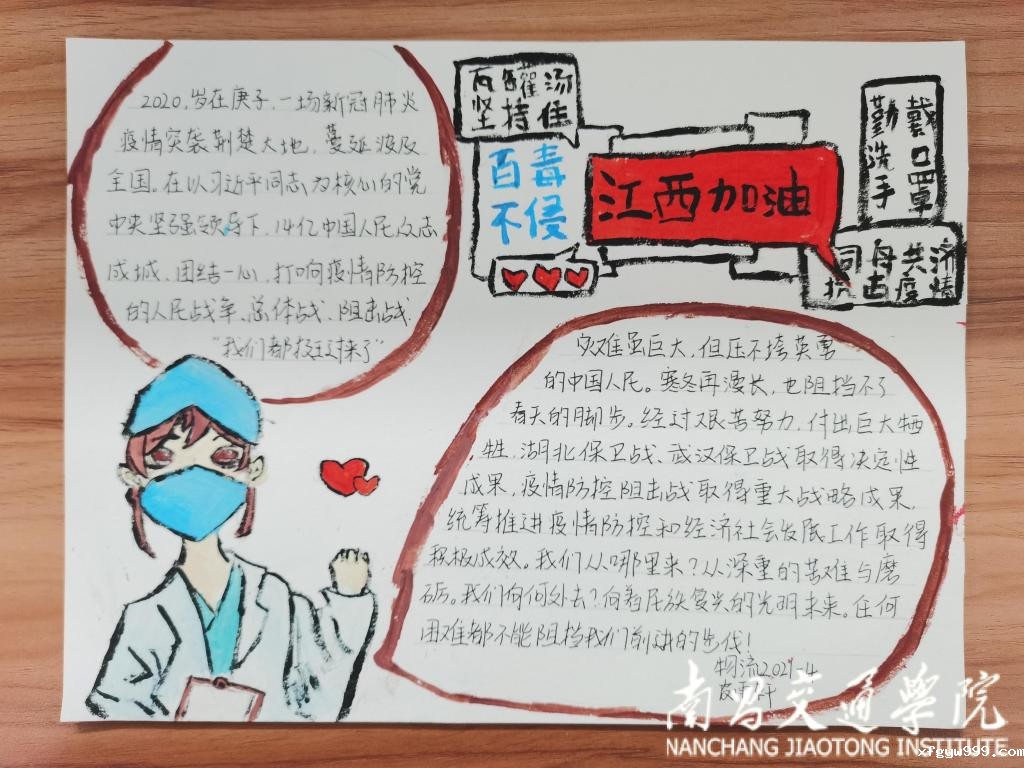 2020,岁在庚子,一场新冠肺炎
疫情突袭荆楚大地,蔓延波及
全国。在以习近平同志为核心的党
中央坚强领导下,14亿中国人民众志
成城,团结一心,打响疫情防控
的人民战争、总体战、阻击战.
"我们都挺过来了"
丙罐汤
坚持住
百毒
不侵
江西加油
戴口罩
勤洗手
同舟共济
抗击疫情
灾难虽巨大,但压不垮英勇
的中国人民。寒冬再漫长,也阻挡不了
春天的脚步。经过艰苦努力,付出巨大牺
牲,湖北保卫战、武汉保卫战取得决定性
成果,疫情防控阻击战取得重大战略成果,
统筹推进疫情防控和经济社会发展工作取得
积极成效。我们从哪里来?从深重的苦难与磨
砺。我们向何处去?向着民族复兴的光明未来。任何
困难都不能阻挡我们前进的步伐!
物流2021-4
南昌交通學院
NANCHANG JIAOTONG INSTITUTE
xfgyw999.com